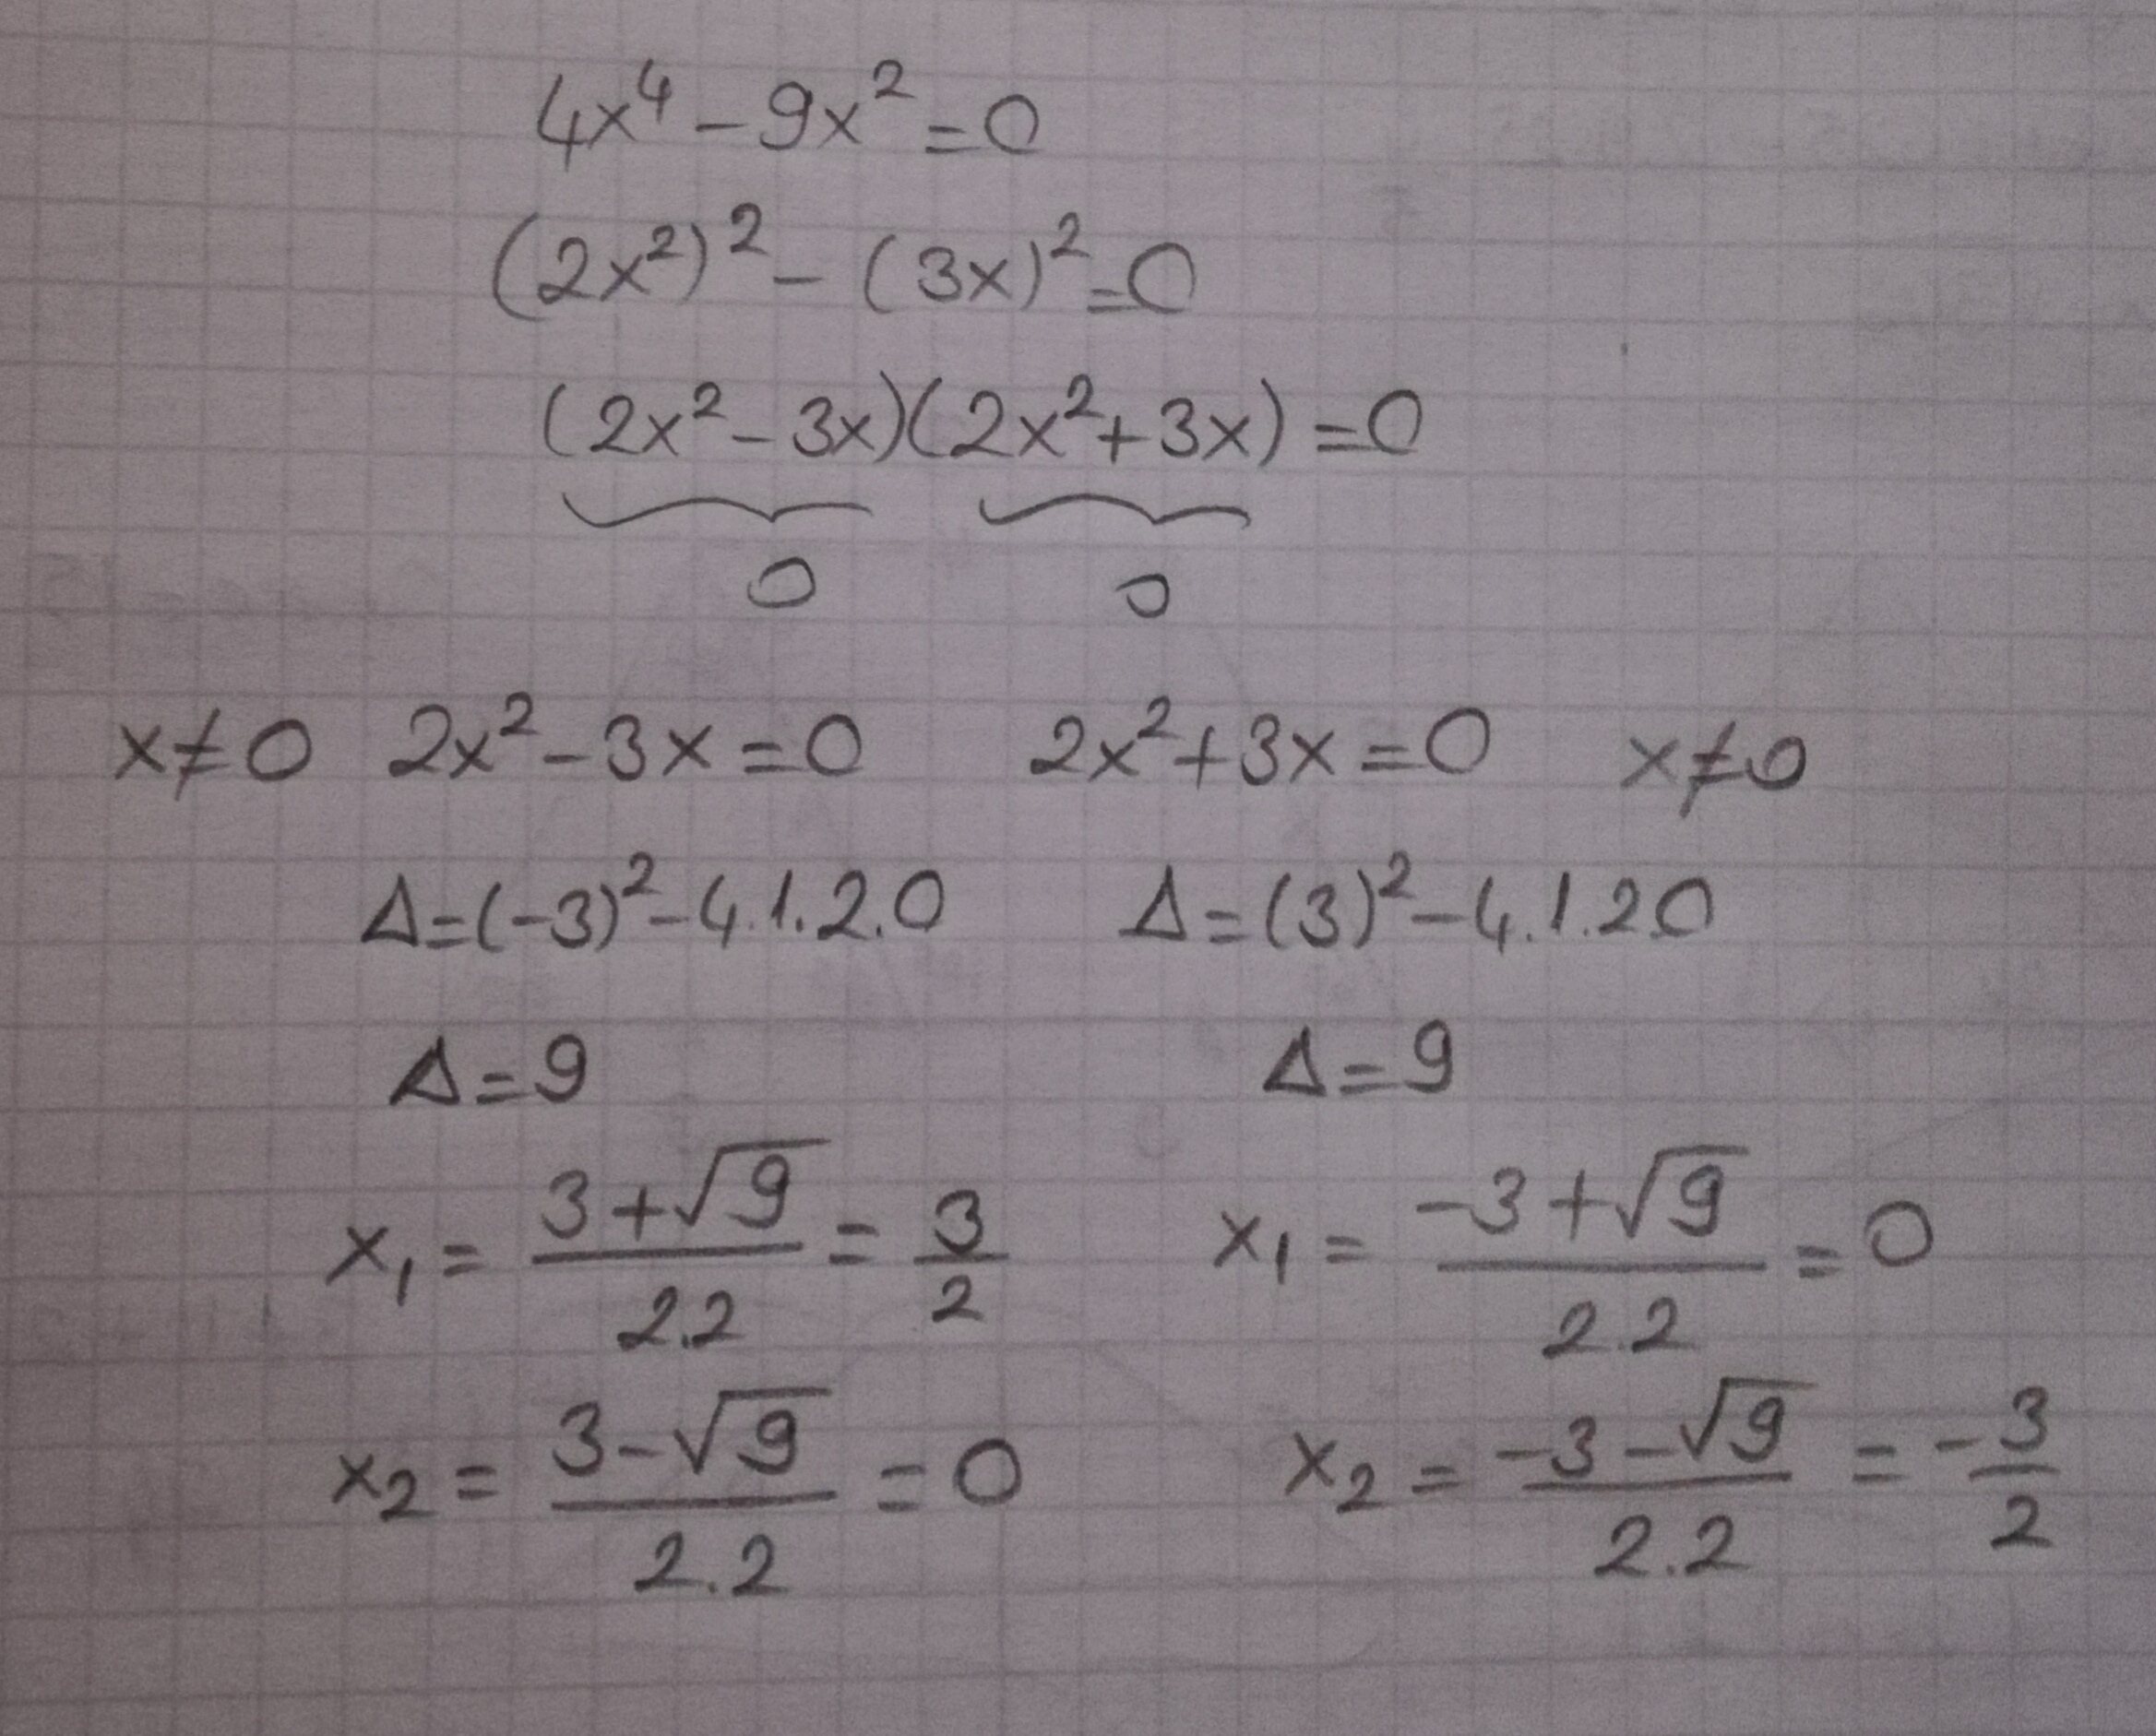 4x⁴ - 9x² = 0
(2x²)² - (3x)² = 0
(2x² - 3x)(2x² + 3x) = 0
0 0
x ≠ 0 2x² - 3x = 0 2x² + 3x = 0 x ≠ 0
Δ = (-3)² - 4.1.2.0 Δ = (3)² - 4.1.2.0
Δ = 9 Δ = 9
x₁ = (3 + √9)/(2.2) = 3/2 x₁ = (-3 + √9)/(2.2) = 0
x₂ = (3 - √9)/(2.2) = 0 x₂ = (-3 - √9)/(2.2) = -3/2